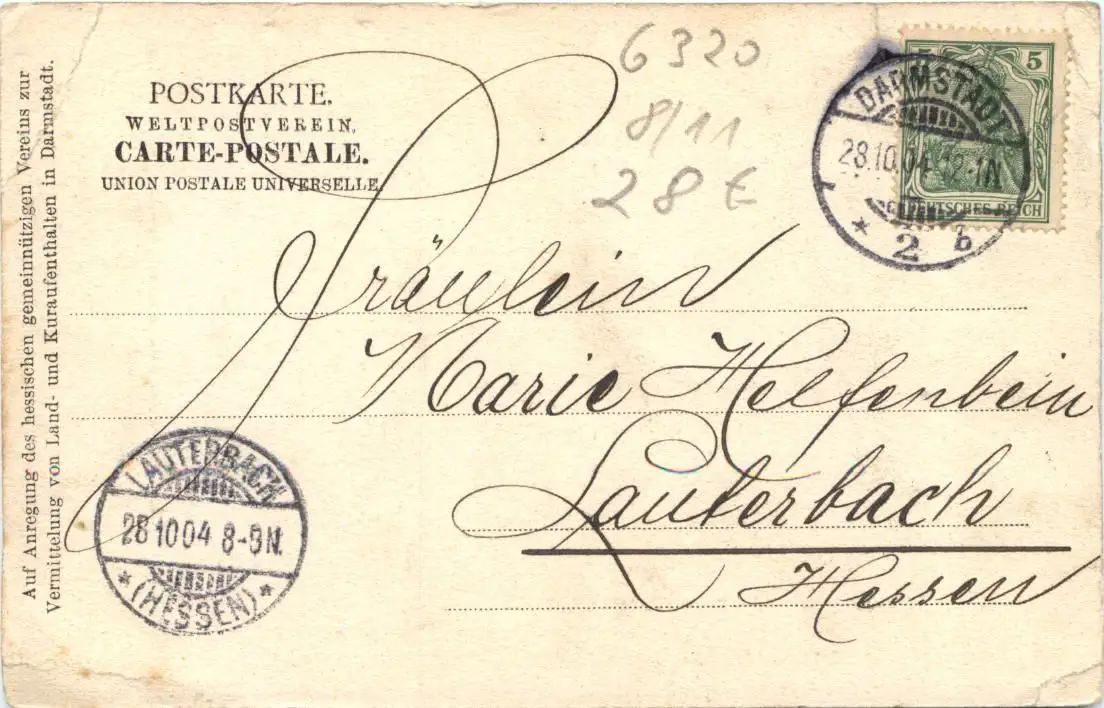 Auf Anregung des hessischen gemeinnützigen Vereins zur
Vermittelung von Land- und Kuraufenthalten in Darmstadt.
POSTKARTE.
WELTPOSTVEREIN.
CARTE-POSTALE.
UNION POSTALE UNIVERSELLE.
6320
8/11
28 €
5 5
DEUTSCHES REICH
DARMSTADT
28.10.04 12-1N
* 2 b
Fräulein
Marie Helfenbein
Lauterbach
Hessen
LAUTERBACH
28 10 04 8-9N.
* (HESSEN) *